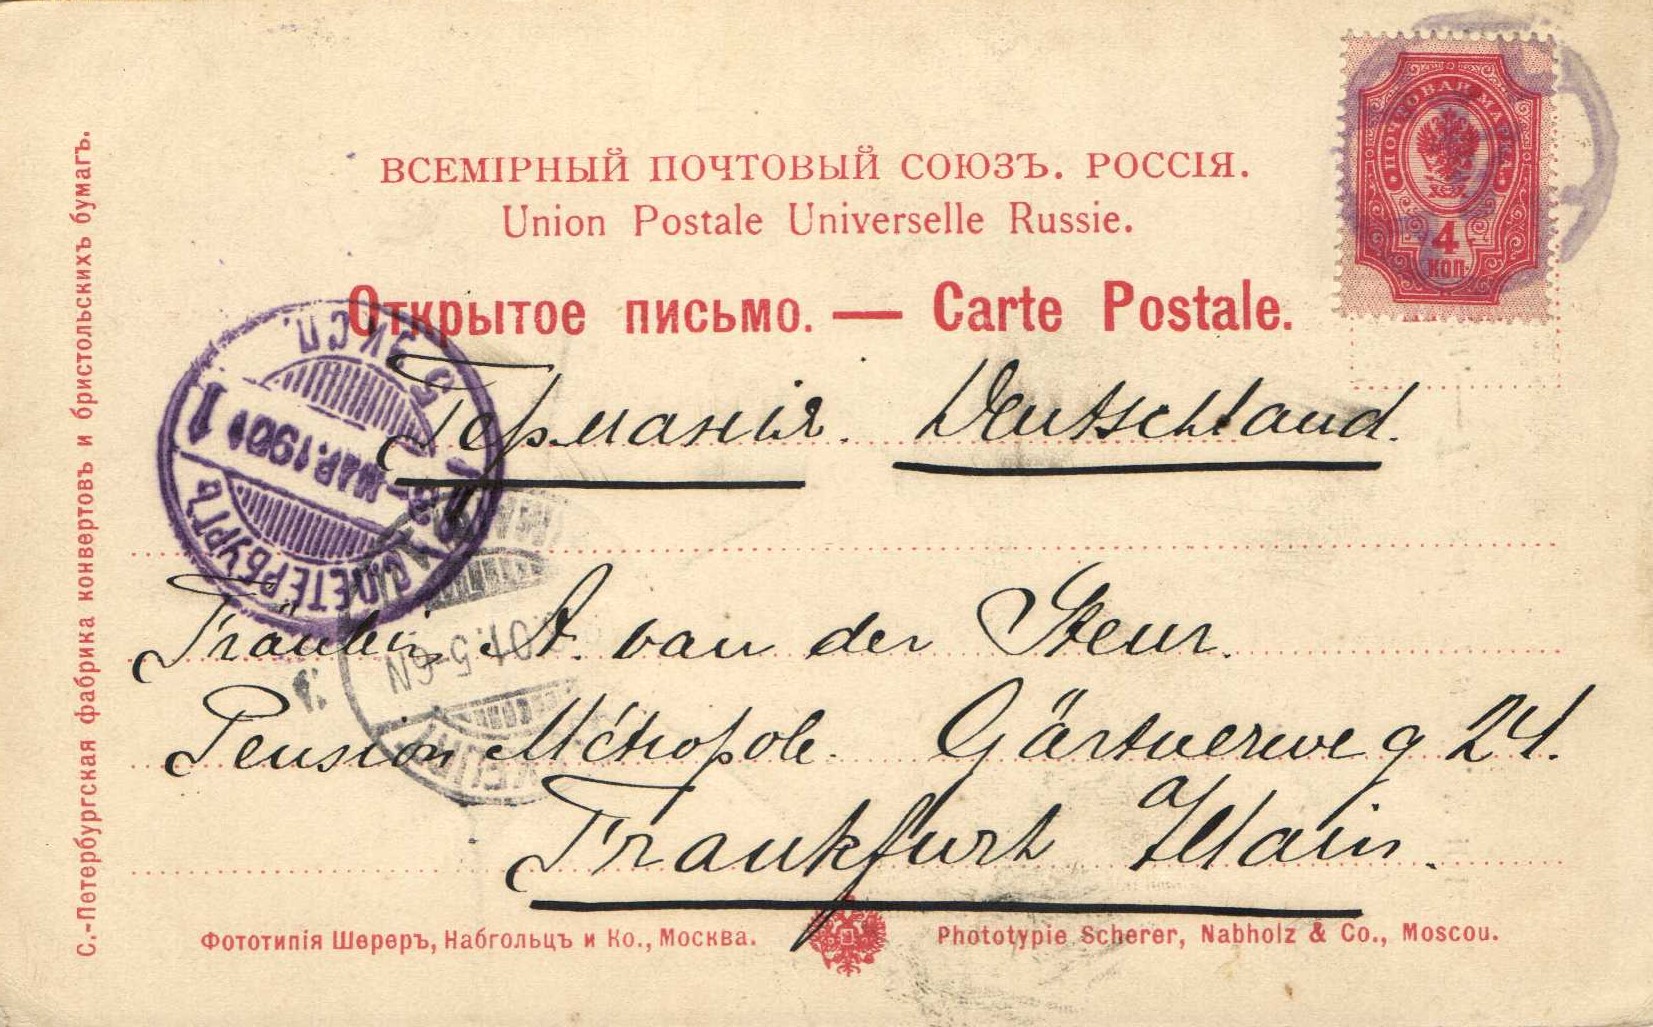 ВСЕМІРНЫЙ ПОЧТОВЫЙ СОЮЗЪ. РОССІЯ.
Union Postale Universelle Russie.
Открытое письмо. — Carte Postale.
ПОЧТОВАЯ МАРКА
4
КОП.
Германія. Deutschland.
С.ПЕТЕРБУРГЪ
МАР. 1901
1
ЭКСП.
5-6N
Fräulein A. van der Steur.
Pension Métropole. Gärtnerweg 24.
Frankfurt a/Main.
Фототипія Шереръ, Набгольцъ и Ко., Москва.
Phototypie Scherer, Nabholz & Co., Moscou.
С.-Петербургская фабрика конвертовъ и бристольскихъ бумагъ.